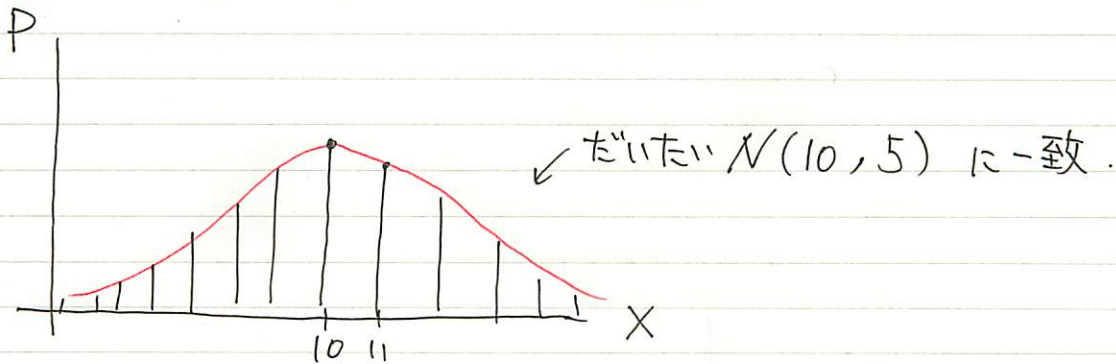 P
だいたい N(10, 5) に一致.
X
10 11